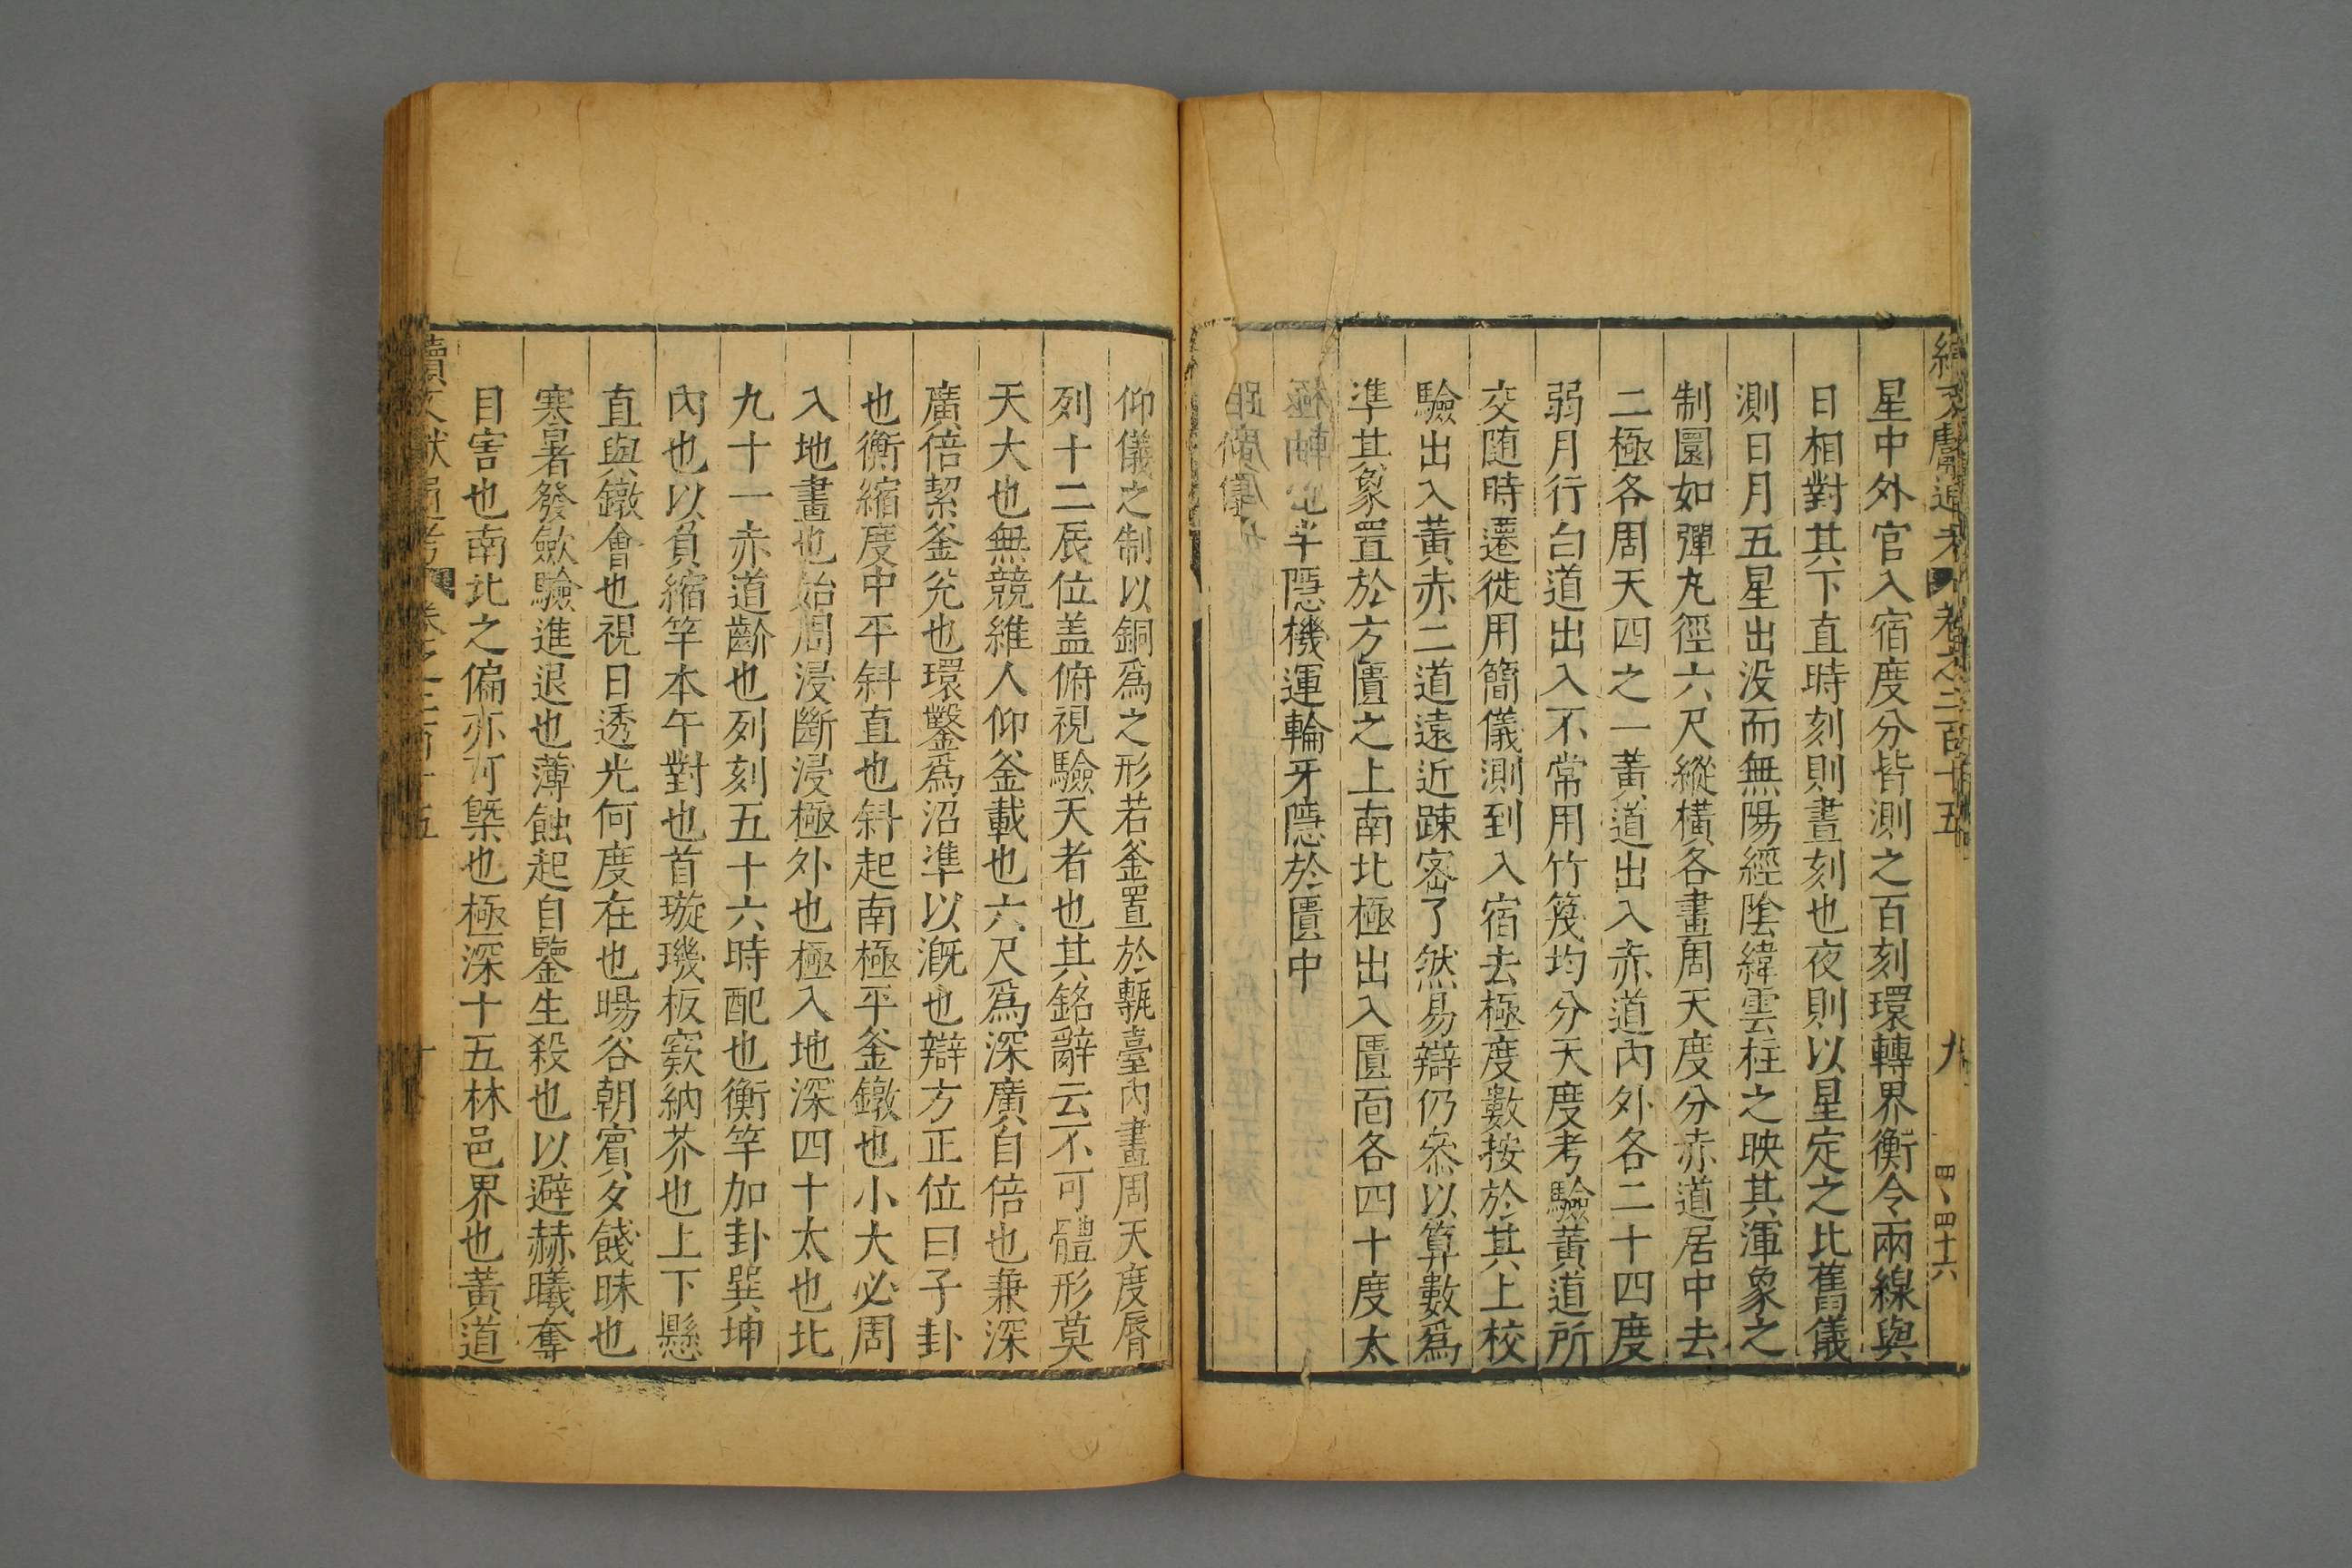 續文獻通考 卷之二百十五 九 四、四十六
星中外官入宿度分皆測之百刻環轉界衡令兩線與
日相對其下直時刻則晝刻也夜則以星定之比舊儀
測日月五星出没而無陽經陰緯雲柱之映其渾象之
制圜如彈丸徑六尺縱橫各畫周天度分赤道居中去
二極各周天四之一黃道出入赤道內外各二十四度
弱月行白道出入不常用竹篾均分天度考驗黃道所
交随時遷徙用簡儀測到入宿去極度數按於其上校
驗出入黃赤二道遠近踈密了然易辯仍叅以算數爲
凖其象置於方匱之上南北極出入匱面各四十度太
極軸 半隱機運輪牙隱於匱中
仰儀
仰儀之制以銅爲之形若釜置於甎臺內畫周天度脣
列十二辰位盖俯視驗天者也其銘辭云不可體形莫
天大也無競維人仰釜載也六尺爲深廣自倍也兼深
廣倍絜釜兊也環鑿爲沼凖以漑也辯方正位曰子卦
也衡縮度中平斜直也斜起南極平釜鐓也小大必周
入地畫也始周浸斷浸極外也極入地深四十太也北
九十一赤道齡也列刻五十六時配也衡竿加卦巽坤
內也以負縮竿本午對也首璇璣板窾納芥也上下懸
直與鐓會也視日透光何度在也暘谷朝賓夕餞昧也
寒暑發歛驗進退也薄蝕起自鑒生殺也以避赫曦奪
目害也南北之偏亦可槩也極深十五林邑界也黃道
續文獻通考 卷之二百十五 十